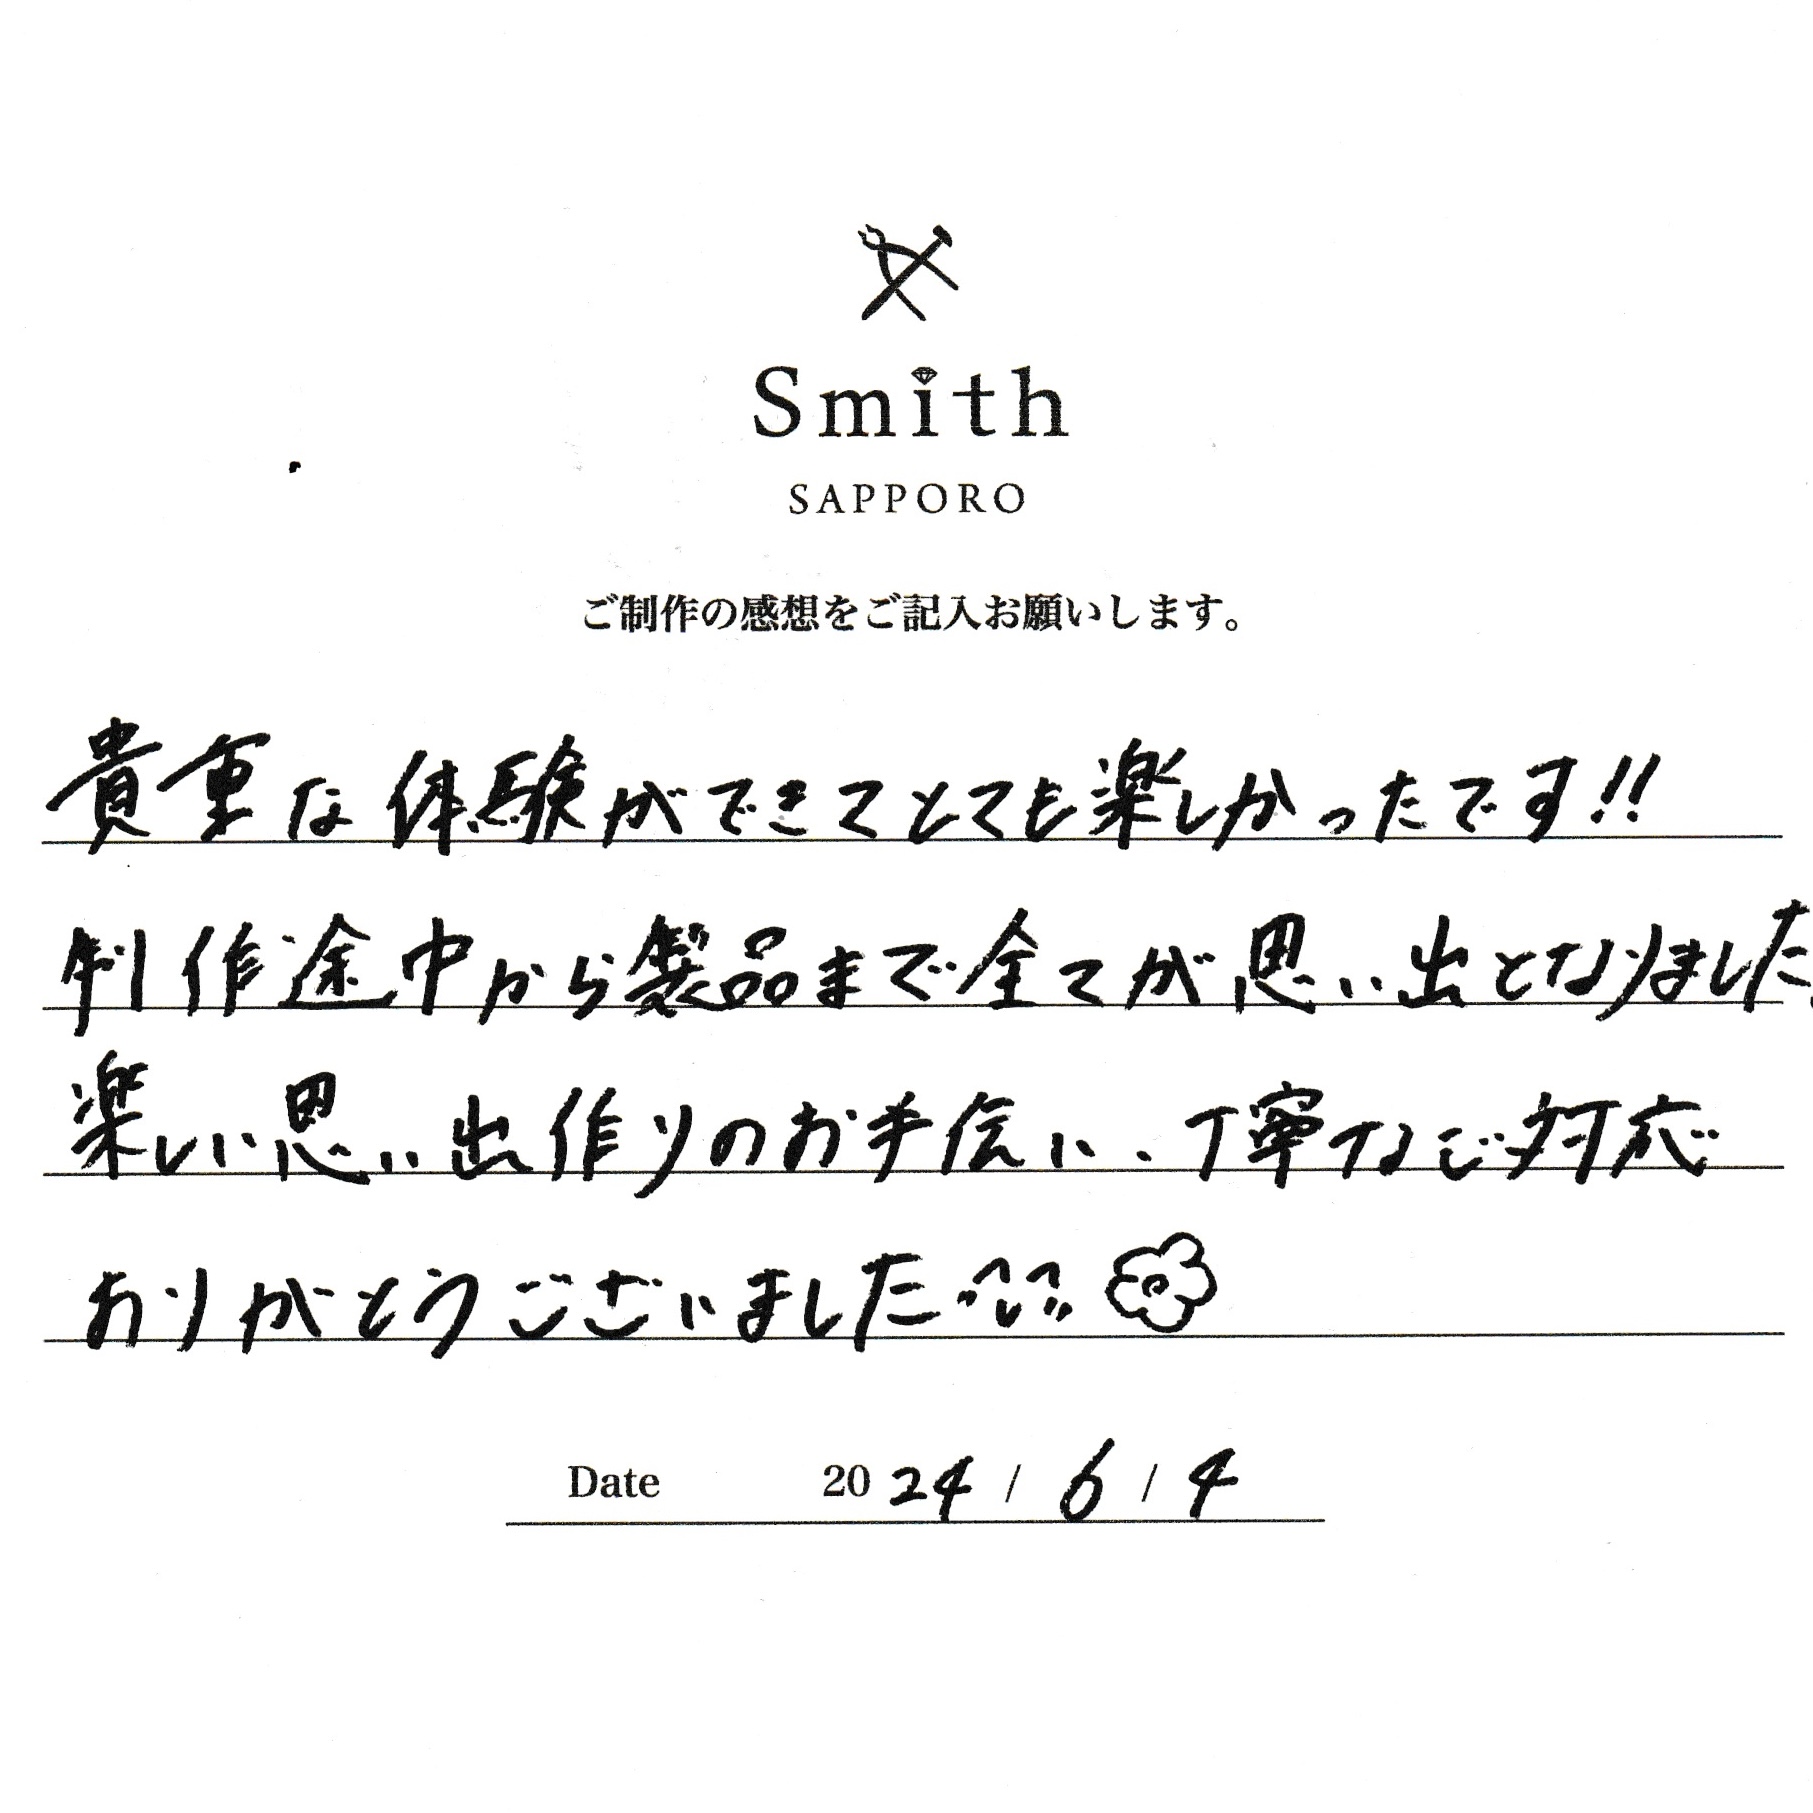 Smith
SAPPORO
ご制作の感想をご記入お願いします。
貴重な体験ができてとても楽しかったです!!
制作途中から製品まで全てが思い出となりました。
楽しい思い出作りのお手伝い、丁寧なご対応
ありがとうございました
Date 2024 / 6 / 4